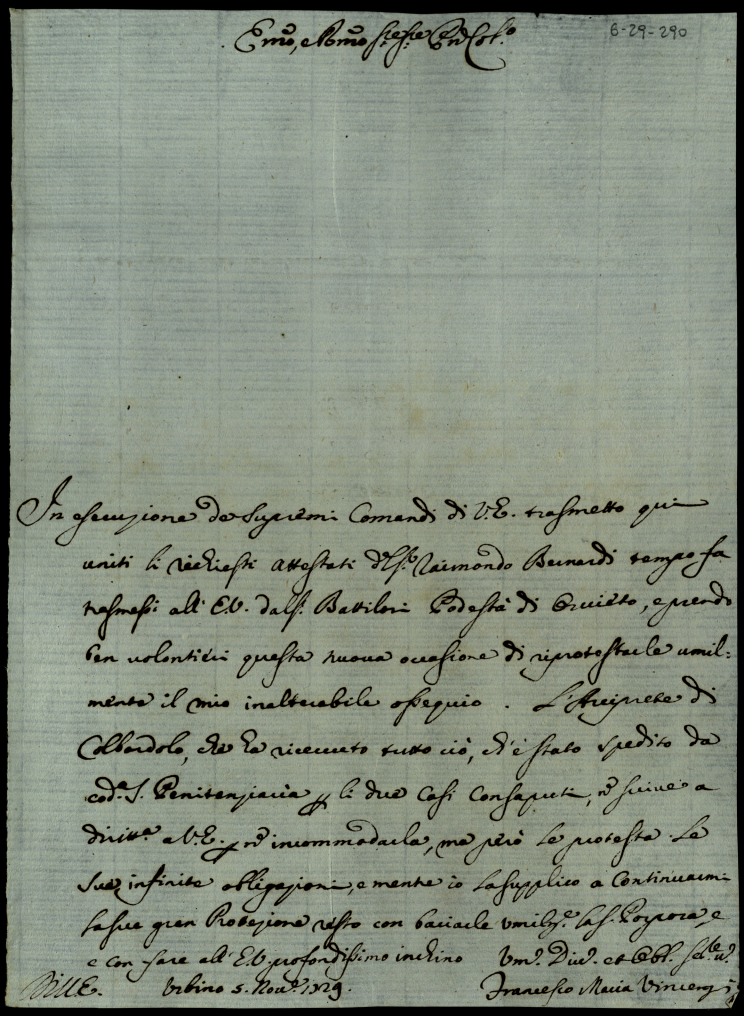 Emo, e Rmo Sig.re Sig.re Pron Col.o
6-29-290
In esecuzione de Supremi Comandi di V.E. trasmetto qui
uniti li richiesti attestati del S.r Raimondo Bernardi tempo fa
trasmessi all' E.V. dal S.r Battilori Podestà di Orvieto, e prendo
ben volontieri questa nuova occasione di riprotestarle umil:
mente il mio inalterabile ossequio. L'Arciprete di
Colbordolo, che ha ricevuto tutto ciò, ch'è stato spedito da
cod.a S. Penitenziaria p li due Casi Consaputi, nō scrive a
diritt.a a V.E. p nō incommodarla, ma però le protesta le
sue infinite obligazioni, e mentre io la supplico a Continuarmi
la sua gran Protezione resto con baciarle umilm.e la S. Porpora, e
e con fare all' E.V. profondissimo inchino Um.o Div.o et Obbl. Se.re
Di V.E. Urbino 5. Nov.e 1729. Francesco Maria Vincenzi